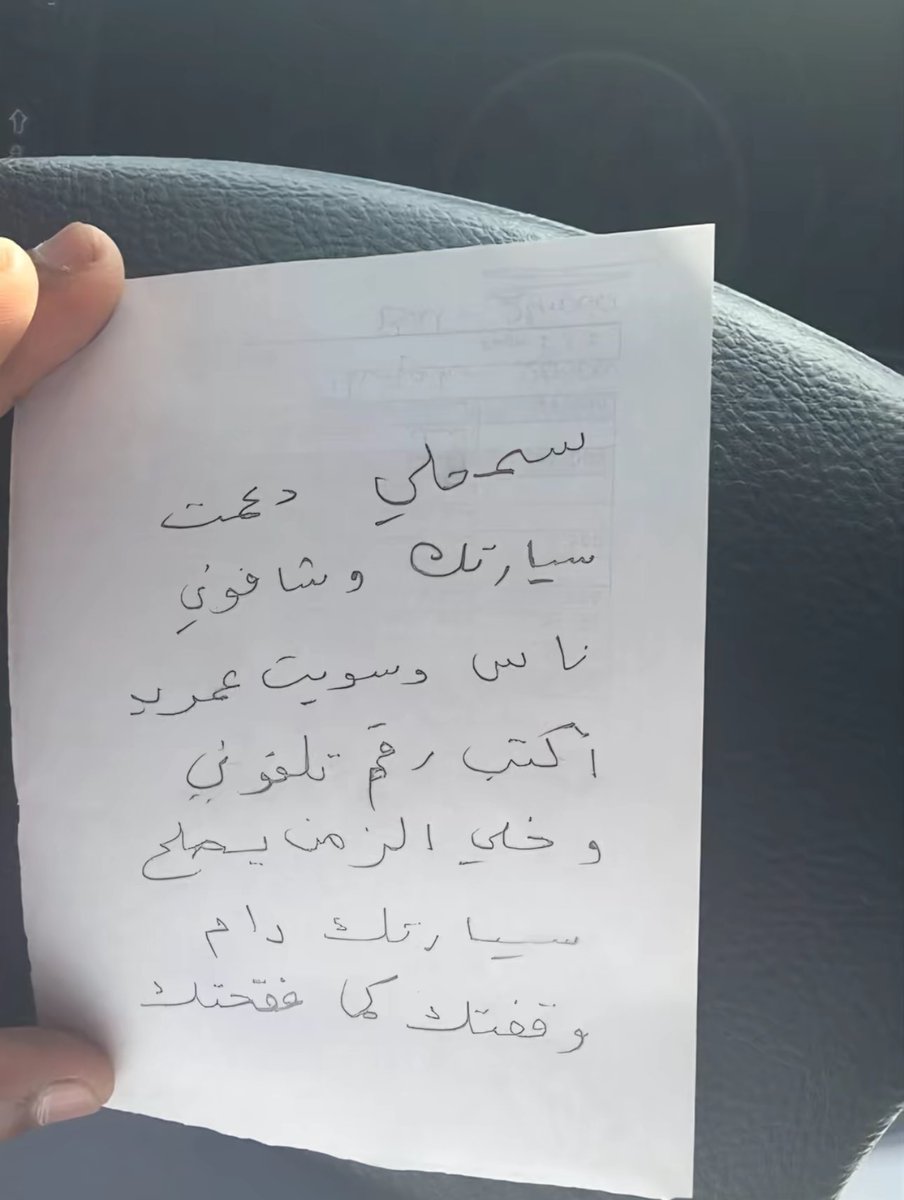 سمحلي دعمت
سيارتك وشافوني
ناس وسويت عمري
أكتب رقم تلفوني
وخلي الزمن يصلح
سيارتك دام
وقفتك كما فقحتك